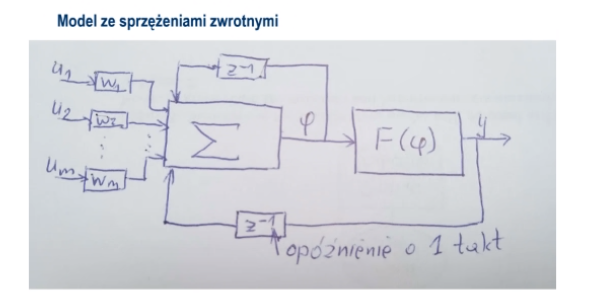 Model ze sprzężeniami zwrotnymi
z⁻¹
u₁ w₁
u₂ w₂
uₘ wₘ
Σ
φ
F(φ)
y
z⁻¹
opóźnienie o 1 takt